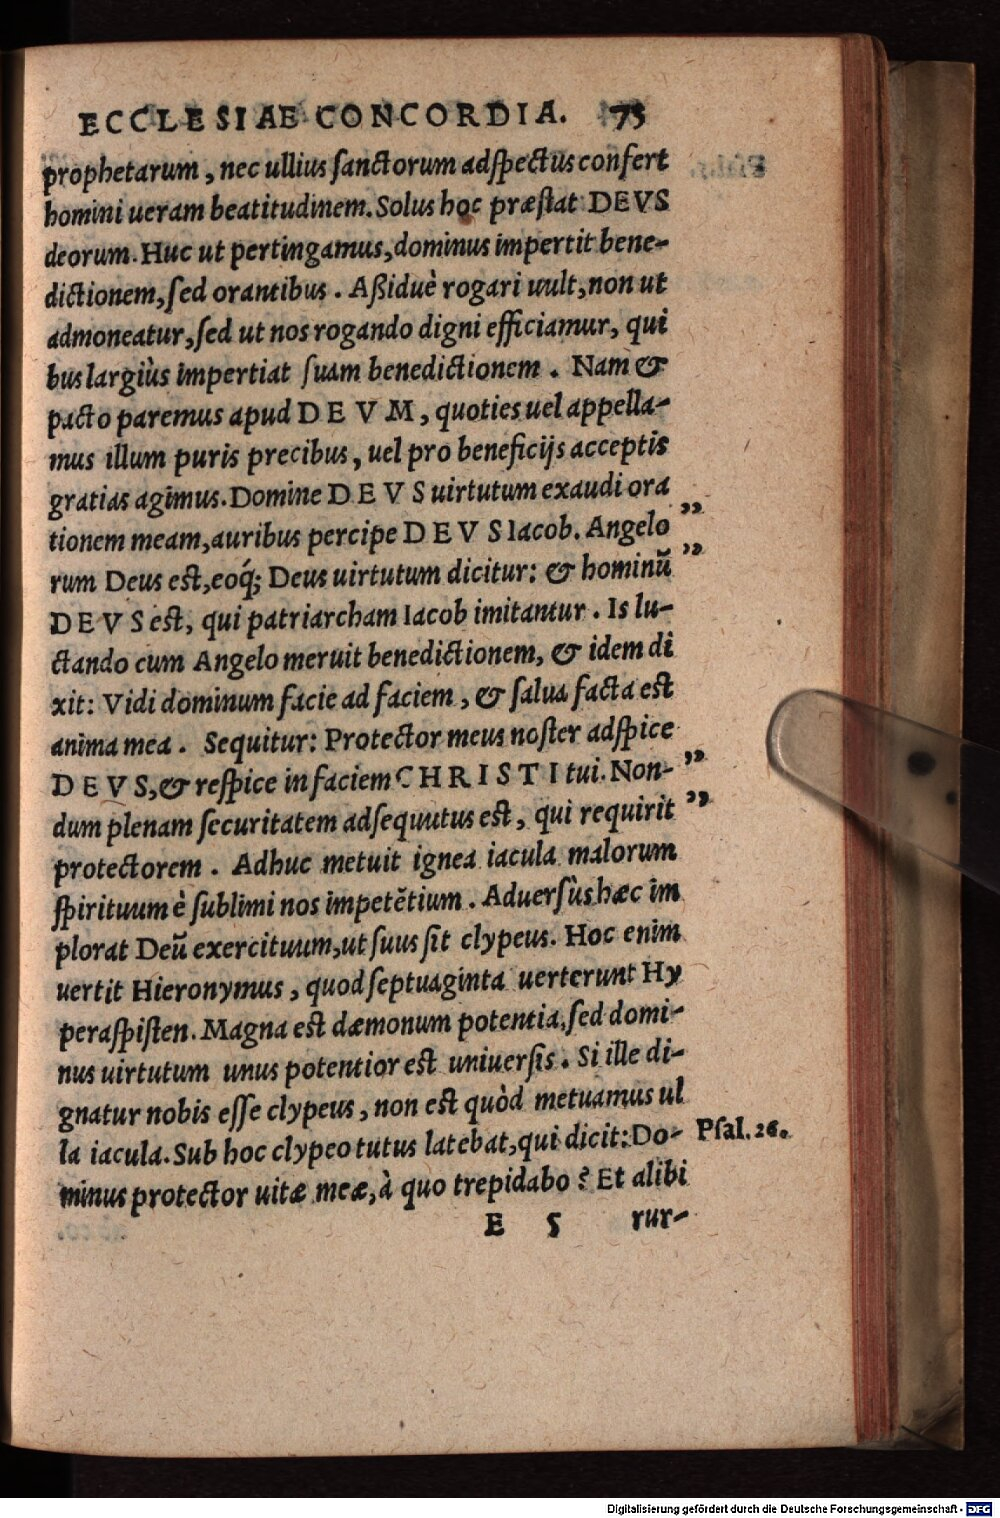 ECCLESIAE CONCORDIA. 75
prophetarum, nec ullius ſanctorum adſpectus confert
homini ueram beatitudinem. Solus hoc præſtat DEVS
deorum. Huc ut pertingamus, dominus impertit bene-
dictionem, ſed orantibus. Aßiduè rogari uult, non ut
admoneatur, ſed ut nos rogando digni efficiamur, qui
bus largiùs impertiat ſuam benedictionem. Nam &
pacto paremus apud DEVM, quoties uel appella-
mus illum puris precibus, uel pro beneficijs acceptis
gratias agimus. Domine DEVS uirtutum exaudi ora ”
tionem meam, auribus percipe DEVS Iacob. Angelo ”
rum Deus est, eoq́; Deus uirtutum dicitur: & hominū
DEVS est, qui patriarcham Iacob imitantur. Is lu-
ctando cum Angelo meruit benedictionem, & idem di
xit: Vidi dominum facie ad faciem, & ſalua facta est
anima mea. Sequitur: Protector meus noſter adſpice
DEVS, & reſpice in faciem CHRISTI tui. Non- ”
dum plenam ſecuritatem adſequutus est, qui requirit ”
protectorem. Adhuc metuit ignea iacula malorum
ſpirituum è ſublimi nos impetētium. Aduerſùs hæc im
plorat Deū exercituum, ut ſuus ſit clypeus. Hoc enim
uertit Hieronymus, quod ſeptuaginta uerterunt Hy
peraſpiſten. Magna est dæmonum potentia, ſed domi-
nus uirtutum unus potentior est uniuerſis. Si ille di-
gnatur nobis eſſe clypeus, non est quòd metuamus ul
la iacula. Sub hoc clypeo tutus latebat, qui dicit: Do- Pſal. 26.
minus protector uitæ meæ, à quo trepidabo? Et alibi
E 5 rur-
Digitalisierung gefördert durch die Deutsche Forschungsgemeinschaft - DFG